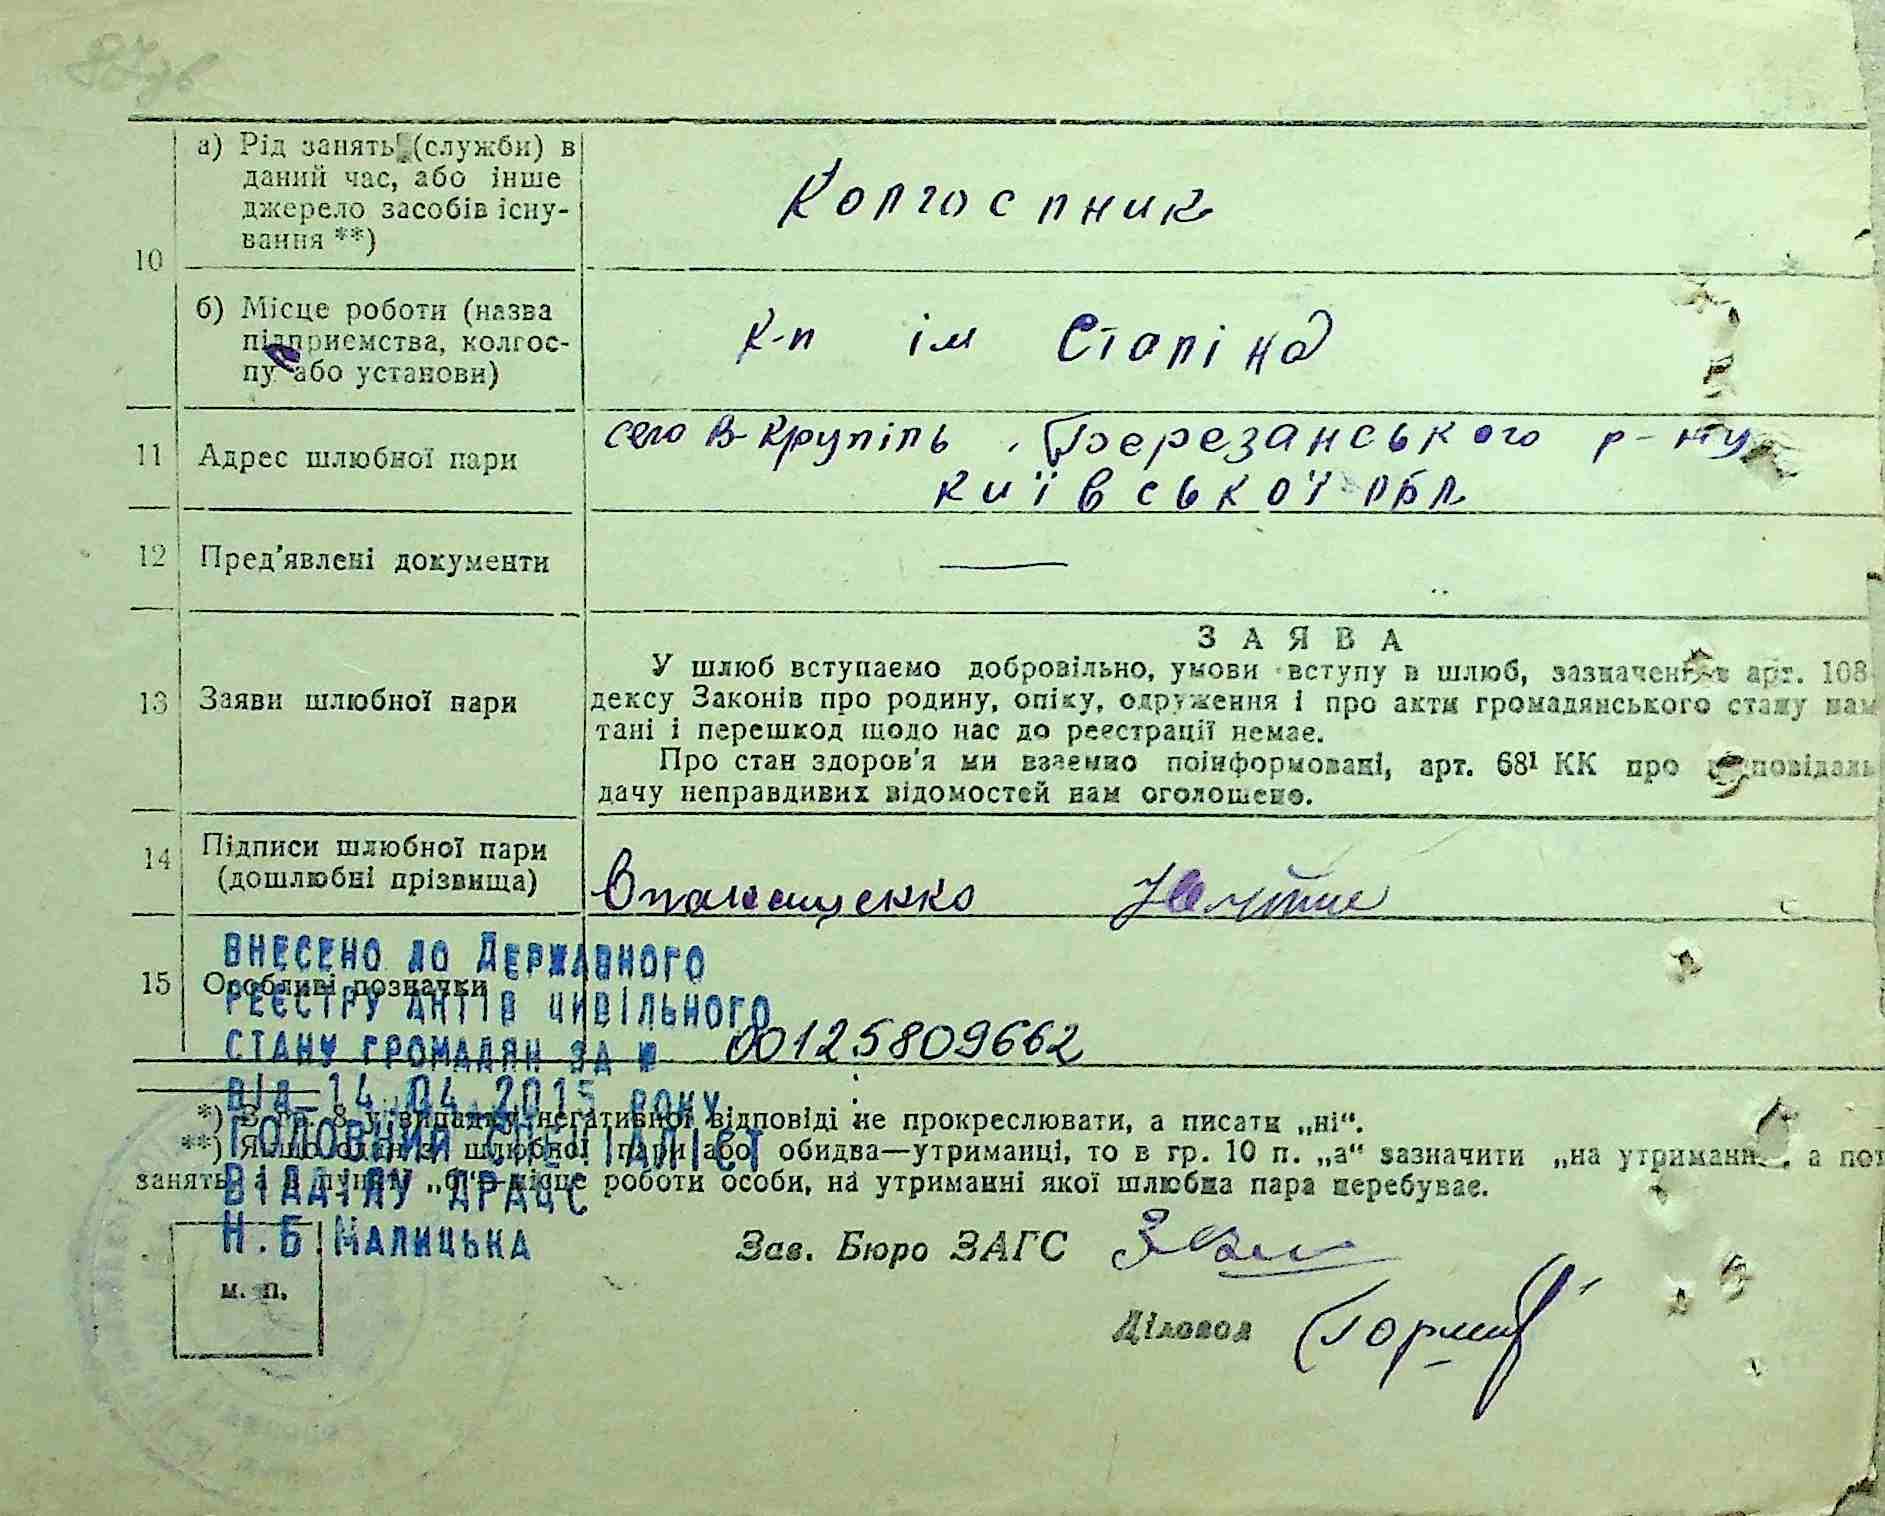 10
а) Рід занять (служби) в
даний час, або інше
джерело засобів існу-
вання **)
Колгоспник
б) Місце роботи (назва
підприємства, колгос-
пу або установи)
К-п ім Сталіна
11 Адрес шлюбної пари
село В-Крупіль, Березанського р-ну
київської обл
12 Пред'явлені документи
13 Заяви шлюбної пари
ЗАЯВА
У шлюб вступаємо добровільно, умови вступу в шлюб, зазначені в арт. 108
дексу Законів про родину, опіку, одруження і про акти громадянського стану нам
тані і перешкод щодо нас до реєстрації немає.
Про стан здоров'я ми взаємно поінформовані, арт. 68¹ КК про відповідаль
дачу неправдивих відомостей нам оголошено.
14 Підписи шлюбної пари
(дошлюбні прізвища)
15 Особливі позначки
ВНЕСЕНО ДО ДЕРЖАВНОГО
РЕЄСТРУ АКТІВ ЦИВІЛЬНОГО
СТАНУ ГРОМАДЯН ЗА № 00125809662
ВІД 14.04.2015 РОКУ
ГОЛОВНИЙ СПЕЦІАЛІСТ
ВІДДІЛУ ДРАЦС
Н.Б.МАЛИЦЬКА
*) В гр. 8 у випадку негативної відповіді не прокреслювати, а писати „ні“.
**) Якщо один з шлюбної пари або обидва—утриманці, то в гр. 10 п. „а“ зазначити „на утриманні“, а пот
занять, а в пункті „б“—місце роботи особи, на утриманні якої шлюбна пара перебуває.
м. п.
Зав. Бюро ЗАГС
Діловод